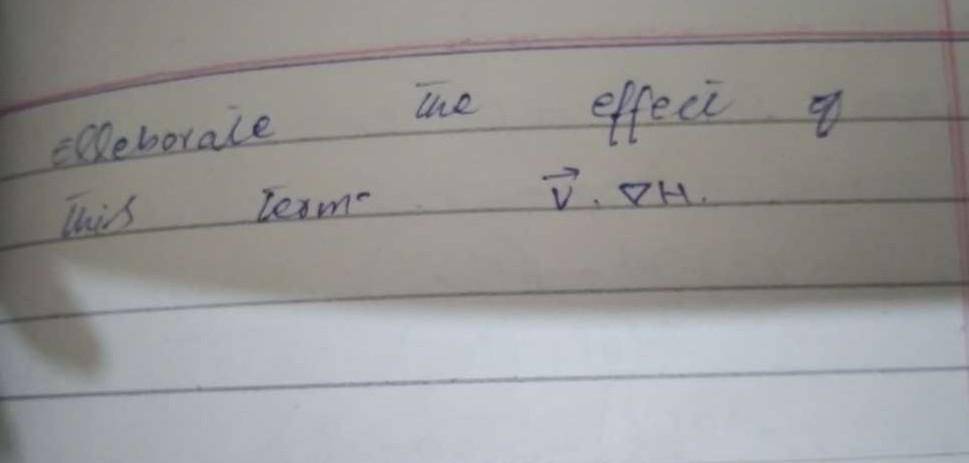 Elleborate the effect of
this term V⃗. ∇H.